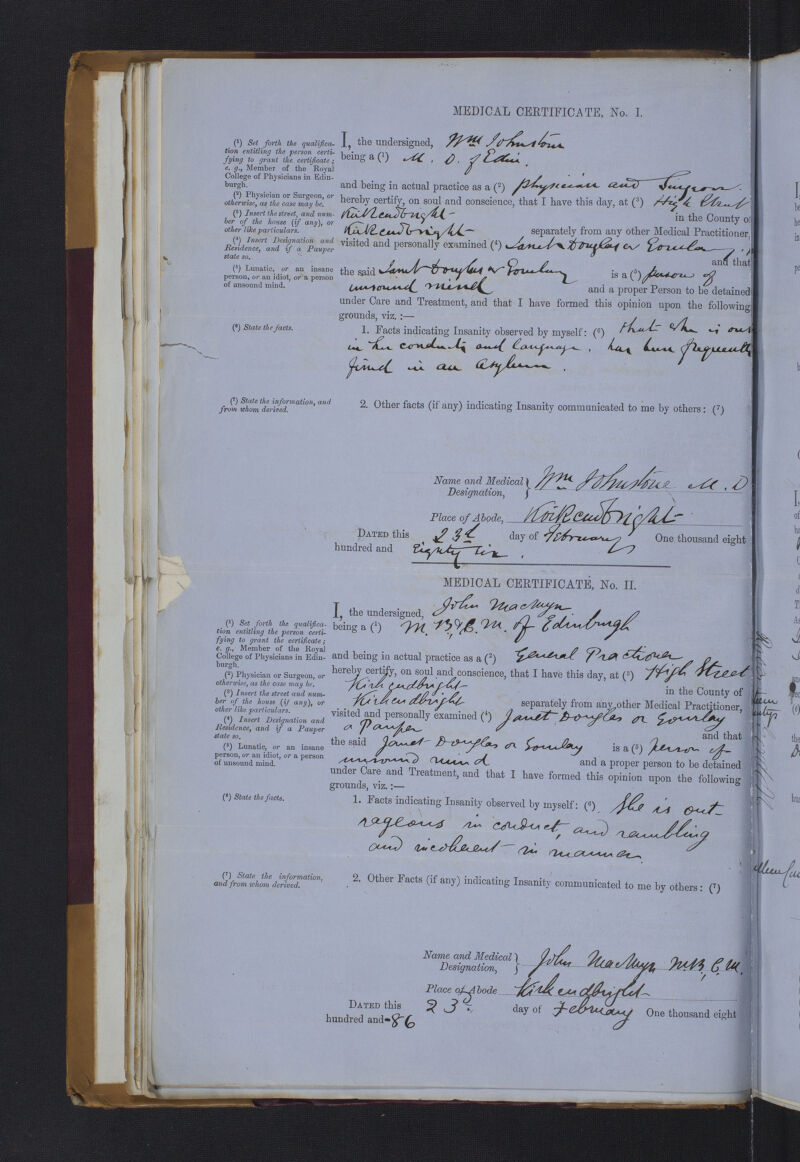 MEDICAL CERTIFICATE, No. I.
(¹) Set forth the qualifica-
tion entitling the person certi-
fying to grant the certificate;
e. g., Member of the Royal
College of Physicians in Edin-
burgh.
(²) Physician or Surgeon, or
otherwise, as the case may be.
(³) Insert the street, and num-
ber of the house (if any), or
other like particulars.
(⁴) Insert Designation and
Residence, and if a Pauper
state so.
(⁵) Lunatic, or an insane
person, or an idiot, or a person
of unsound mind.
(⁶) State the facts.
(⁷) State the information, and
from whom derived.
I, the undersigned, Wm Johnstone
being a (¹) M. D. of Edin.
and being in actual practice as a (²) physician and Surgeon
hereby certify, on soul and conscience, that I have this day, at (³) High Street
Kirkcudbright in the County of
Kirkcudbright separately from any other Medical Practitioner,
visited and personally examined (⁴) Janet Douglas or Gourlay
and that
the said Janet Douglas or Gourlay is a (⁵) person of
unsound mind and a proper Person to be detained
under Care and Treatment, and that I have formed this opinion upon the following
grounds, viz. :—
1. Facts indicating Insanity observed by myself: (⁶) that she is out
in her conduct and language. has been frequently
in an Asylum.
2. Other facts (if any) indicating Insanity communicated to me by others: (⁷)
Name and Medical Designation, Wm Johnstone M. D
Place of Abode, Kirkcudbright
DATED this 23d day of February One thousand eight
hundred and Eighty Six.
MEDICAL CERTIFICATE, No. II.
(¹) Set forth the qualifica-
tion entitling the person certi-
fying to grant the certificate;
e. g., Member of the Royal
College of Physicians in Edin-
burgh.
(²) Physician or Surgeon, or
otherwise, as the case may be.
(³) Insert the street and num-
ber of the house (if any), or
other like particulars.
(⁴) Insert Designation and
Residence, and if a Pauper
state so.
(⁵) Lunatic, or an insane
person, or an idiot, or a person
of unsound mind.
(⁶) State the facts.
(⁷) State the information,
and from whom derived.
I, the undersigned, John MacMyn
being a (¹) M.B. & C.M. of Edinburgh
and being in actual practice as a (²) General Practioner
hereby certify, on soul and conscience, that I have this day, at (³) High Street
Kirkcudbright in the County of
Kirkcudbright separately from any other Medical Practitioner,
visited and personally examined (⁴) Janet Douglas or Gourlay
a Pauper and that
the said Janet Douglas or Gourlay is a (⁵) person of
unsound mind and a proper person to be detained
under Care and Treatment, and that I have formed this opinion upon the following
grounds, viz. :—
1. Facts indicating Insanity observed by myself: (⁶) She is out-
rageous in conduct, and rambling
and incoherent in manner.
2. Other Facts (if any) indicating Insanity communicated to me by others: (⁷)
Name and Medical Designation, John MacMyn M.B, C.M.
Place of Abode Kirkcudbright
DATED this 23d day of February One thousand eight
hundred and 86